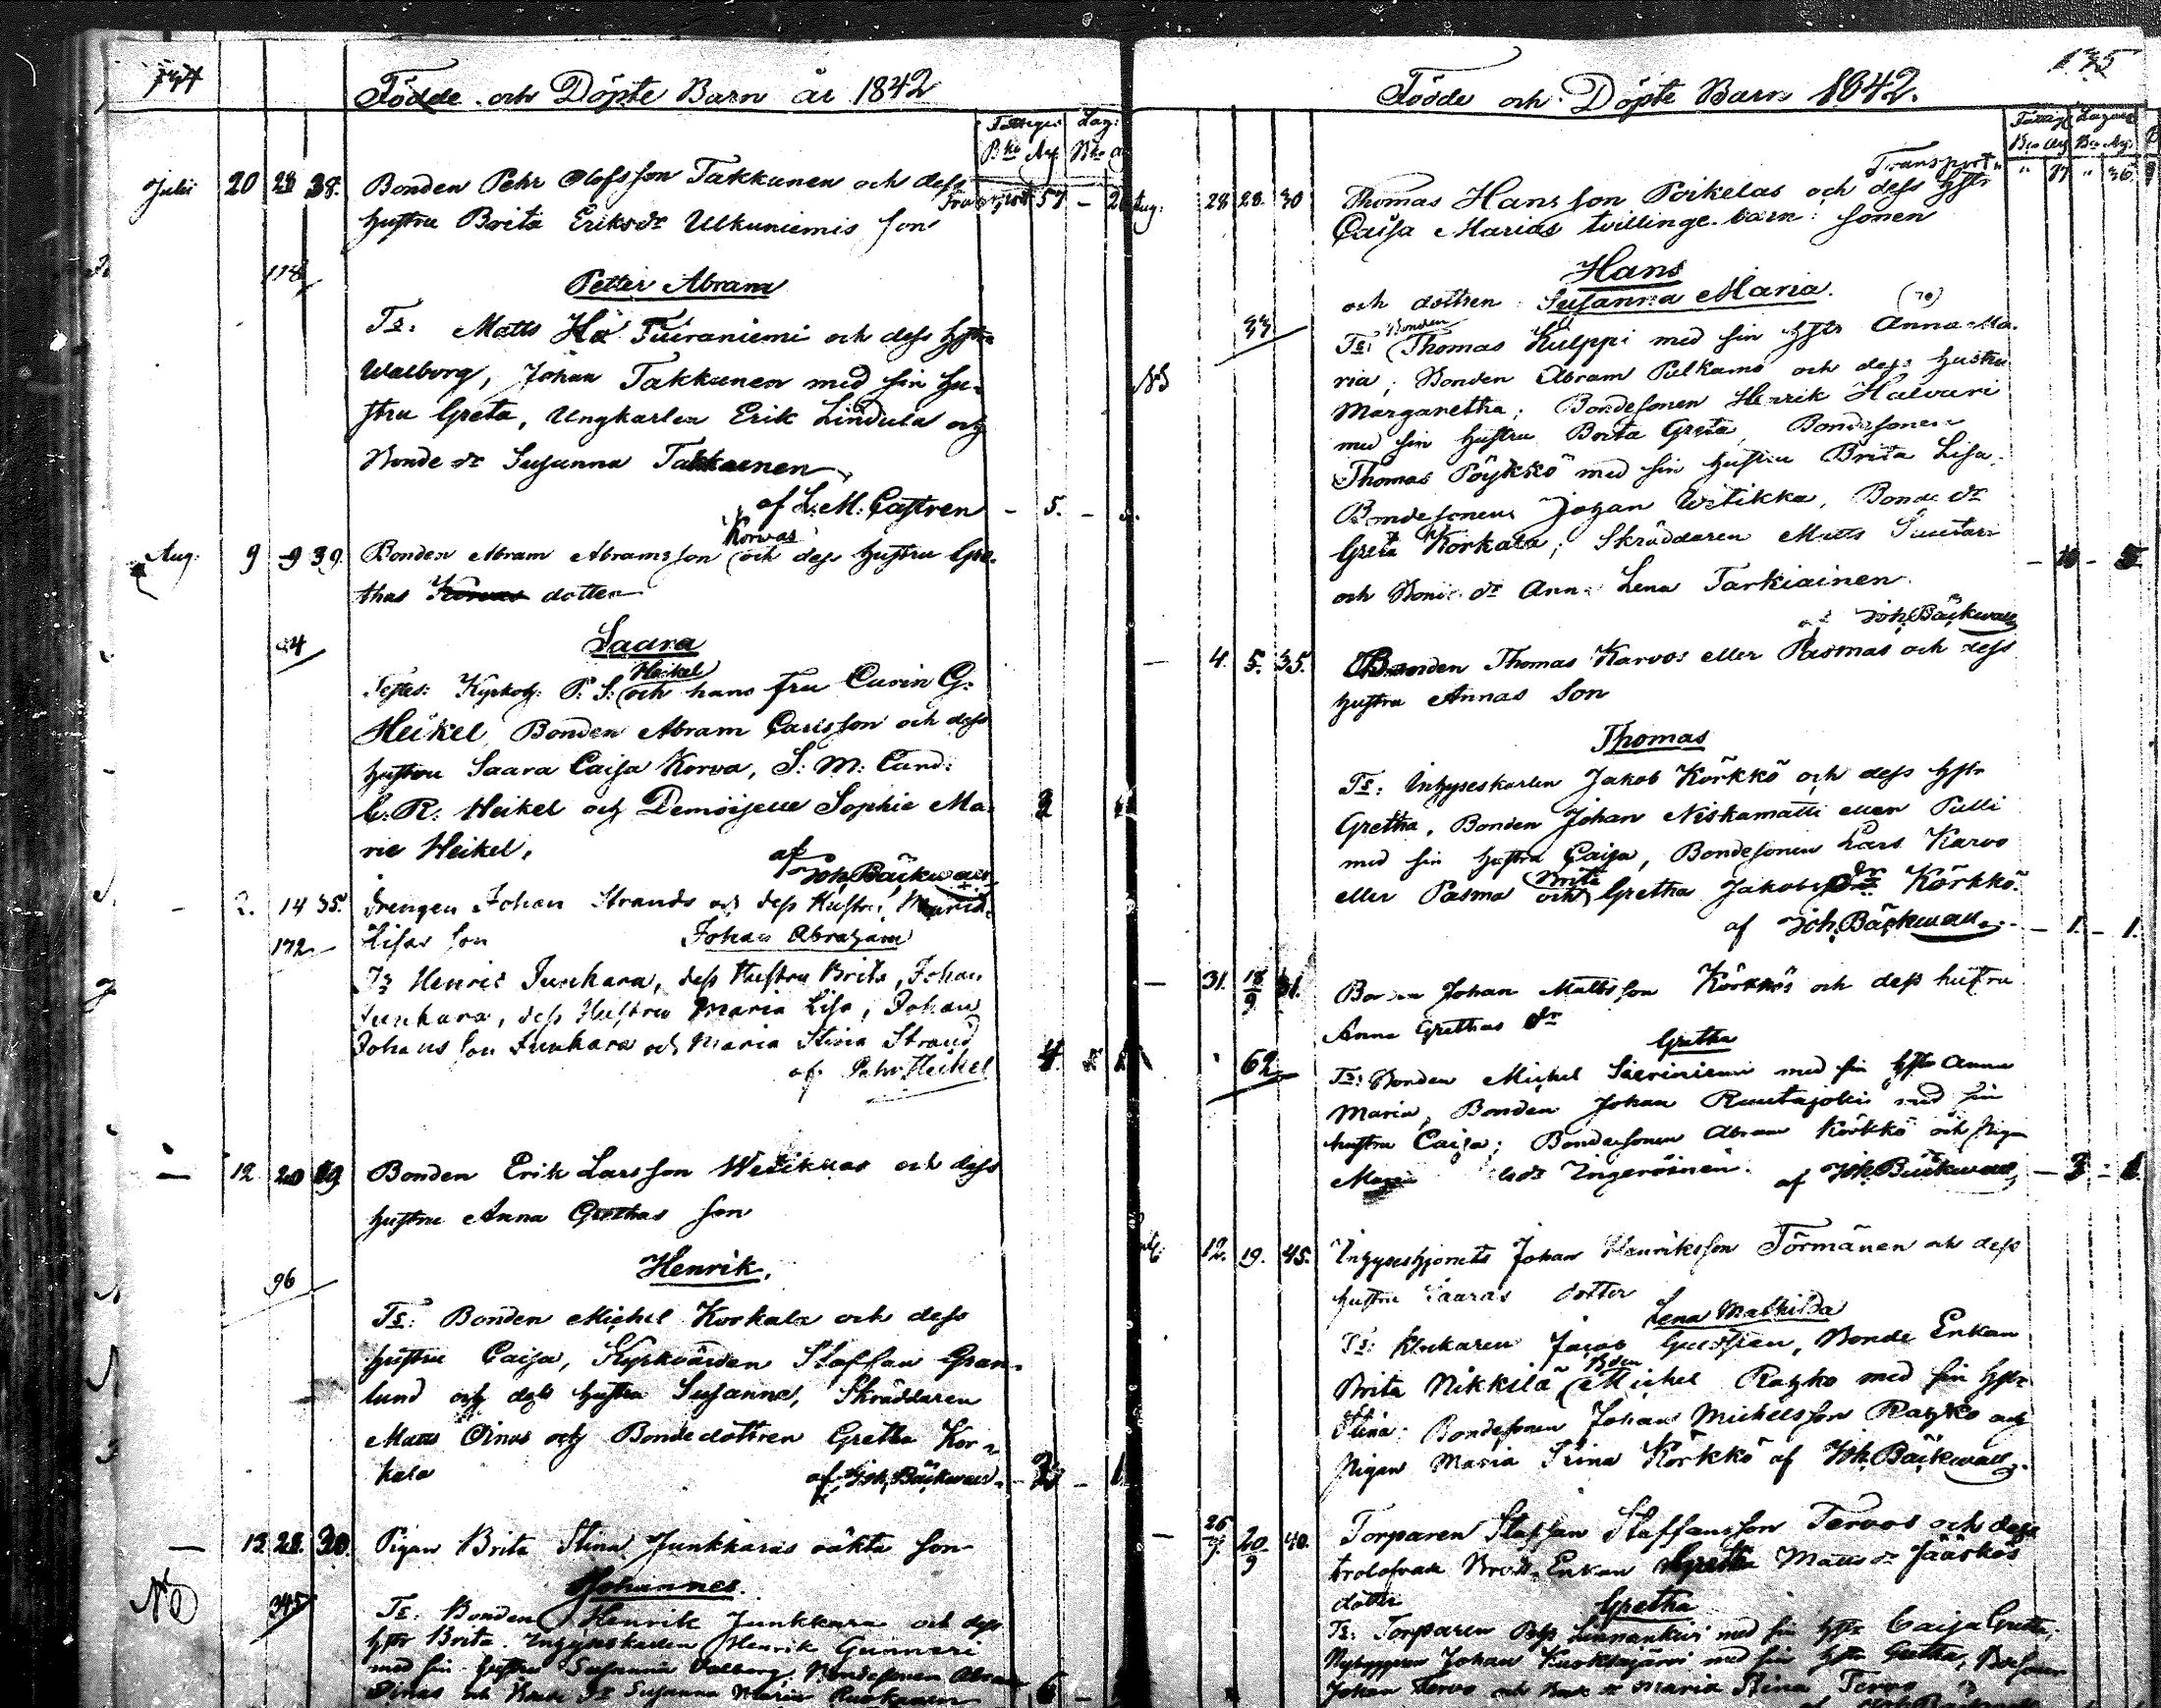 174
Födde och Döpte Barn år 1842
Fattige: Laz:
Bko Rg. Bko
Julii 20 28 38. Bonden Pehr Olofsson Takkunen och dess
Transport 57 - 2
hustru Brita Eriksdr Ulkuniemis son
118
Petter Abram
Ts: Matts Hs Tuiraniemi och dess hstr
Walborg, Johan Takkunen med sin hu-
stru Greta, Ungkarlen Erik Lindula och
Bonde dr Susanna Takkunen
af L: M: Castren - 5. -
Korvas
Aug. 9 9 39. Bonden Abram Abramsson och dess hustru Gre-
thas Korvas dotter
94
Saara
Heikel
Testes: Kyrkoh: P: S: och hans fru Carin G:
Heikel, Bonden Abram Carlsson och dess
hustru Saara Caisa Korva, S: M: Cand:
C. R. Heikel och Demoiselle Sophie Ma-
rie Heikel. af
Joh. Bäckwall
- 2. 14 35. Drengen Johan Strands och dess Hustru Maria
172 Lisas son Johan Abraham
Ts Henric Junkara, dess Hustru Brita, Johan
Junkara, dess Hustru Maria Lisa, Johan
Johansson Junkara och Maria Stina Strand
af Pehr Heikel
- 12 20 29 Bonden Erik Larsson och dess
hustru Anna Grethas son
96
Henrik.
Ts: Bonden Michel Korkala och dess
hustru Caisa, Kyrkvärden Staffan Gran-
lund och dess hustru Susanna, Skräddaren
Matts Oinas och Bondedottren Gretha Kor-
kala af Joh. Bäckwall - 2 - 1
- 12 28. 30. Pigan Brita Stina Junkkaras oäkta son
Johannes.
345
Ts: Bonden Henrik Junkkara och dess
hstr Brita. Inhyseskarlen Henrik Gunnari
med sin hustru Susanna Valborg, Bondesonen Abram
Oinas och Bonde dr Susanna Maria Ruokanen 6 -
175
Födde och Döpte Barn 1842.
Fattig Lazar
Bco Rg Bco Rg
Transport
Aug: 28 28. 30 Thomas Hansson Poikelas och dess hstr
Caisa Marias tvillinge barn: sonen
Hans
och dottren Susanna Maria.
Bonden
Ts: Thomas Kulppi med sin hstr Anna Ma-
ria; Bonden Abram Pelkamo och dess hustru
Margaretha; Bondesonen Henrik Halvari
med sin hustru Brita Greta, Bondesonen
Thomas Pöykkö med sin hustru Brita Lisa.
Bondesonen Johan Witikka, Bonde dr
Greta Korkala; Skräddaren Matts Suutari
och Bonde dr Anna Lena Tarkiainen.
af Joh. Bäckwall
- 4. 5. 35. Bonden Thomas Karvos eller Pasmas och dess
hustru Annas son
Thomas
Ts: Inhyseskarlen Jakob Körkkö och dess hstr
Gretha, Bonden Johan Niskamatti eller Pulli
med sin hustru Caisa, Bondesonen Lars Karvo
Brita
eller Pasma och Gretha Jakobsdr Körkkö.
af Joh. Bäckwall - 1. - 1.
- 31. 18/9 31. Bonden Johan Mattsson Körkkös och dess hustru
Anna Grethas dr
Gretha
62
Ts: Bonden Michel Sieriniemi med sin hstr Anna
Maria, Bonden Johan Rautajoki med sin
hustru Caisa; Bondesonen Abram Körkkö och pigan
Maria Ingeröinen. af Joh. Bäckwall
12. 19. 45. Inhyseshjonets Johan Henriksson Törmänen och dess
hustru Saaras dotter
Lena Mathilda
Ts: Klockaren Jacob, Bonde Enkan
Bden
Brita Nikkilä Michel Ratzko med sin hstr
Stina; Bondesonen Johan Michelsson Ratzko och
Pigan Maria Stina Körkkö af Joh. Bäckwall.
- 26/9. 20/9 40. Torparen Staffan Staffansson Tervos och dess
trolofvade Enkan Gretha Matts dr Jääskös
dotter
Gretha
Ts: Torparen Linnankivi med sin hstr Caisa Greta;
Nybyggaren Johan med sin hstr Gretha,
Johan Tervo och Bonde dr Maria Stina Tervo